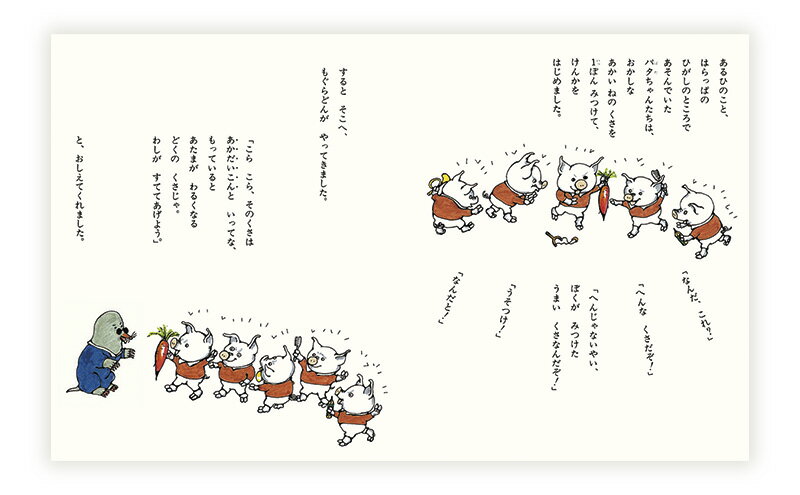 あるひのこと、
はらっぱの
ひがしのところで
あそんでいた
パタちゃんたちは、
おかしな
あかい ねの くさを
1ぽん みつけて、
けんかを
はじめました。
「なんだ、これ?」
「へんな くさだぞ!」
「へんじゃないやい、
ぼくが みつけた
うまい くさなんだぞ!」
「うそつけ!」
「なんだと!」
すると そこへ、
もぐらどんが やってきました。
「こら こら、そのくさは
あかだいこんと いってな、
もっていると
あたまが わるくなる
どくの くさじゃ。
わしが すててあげよう」
と、おしえてくれました。